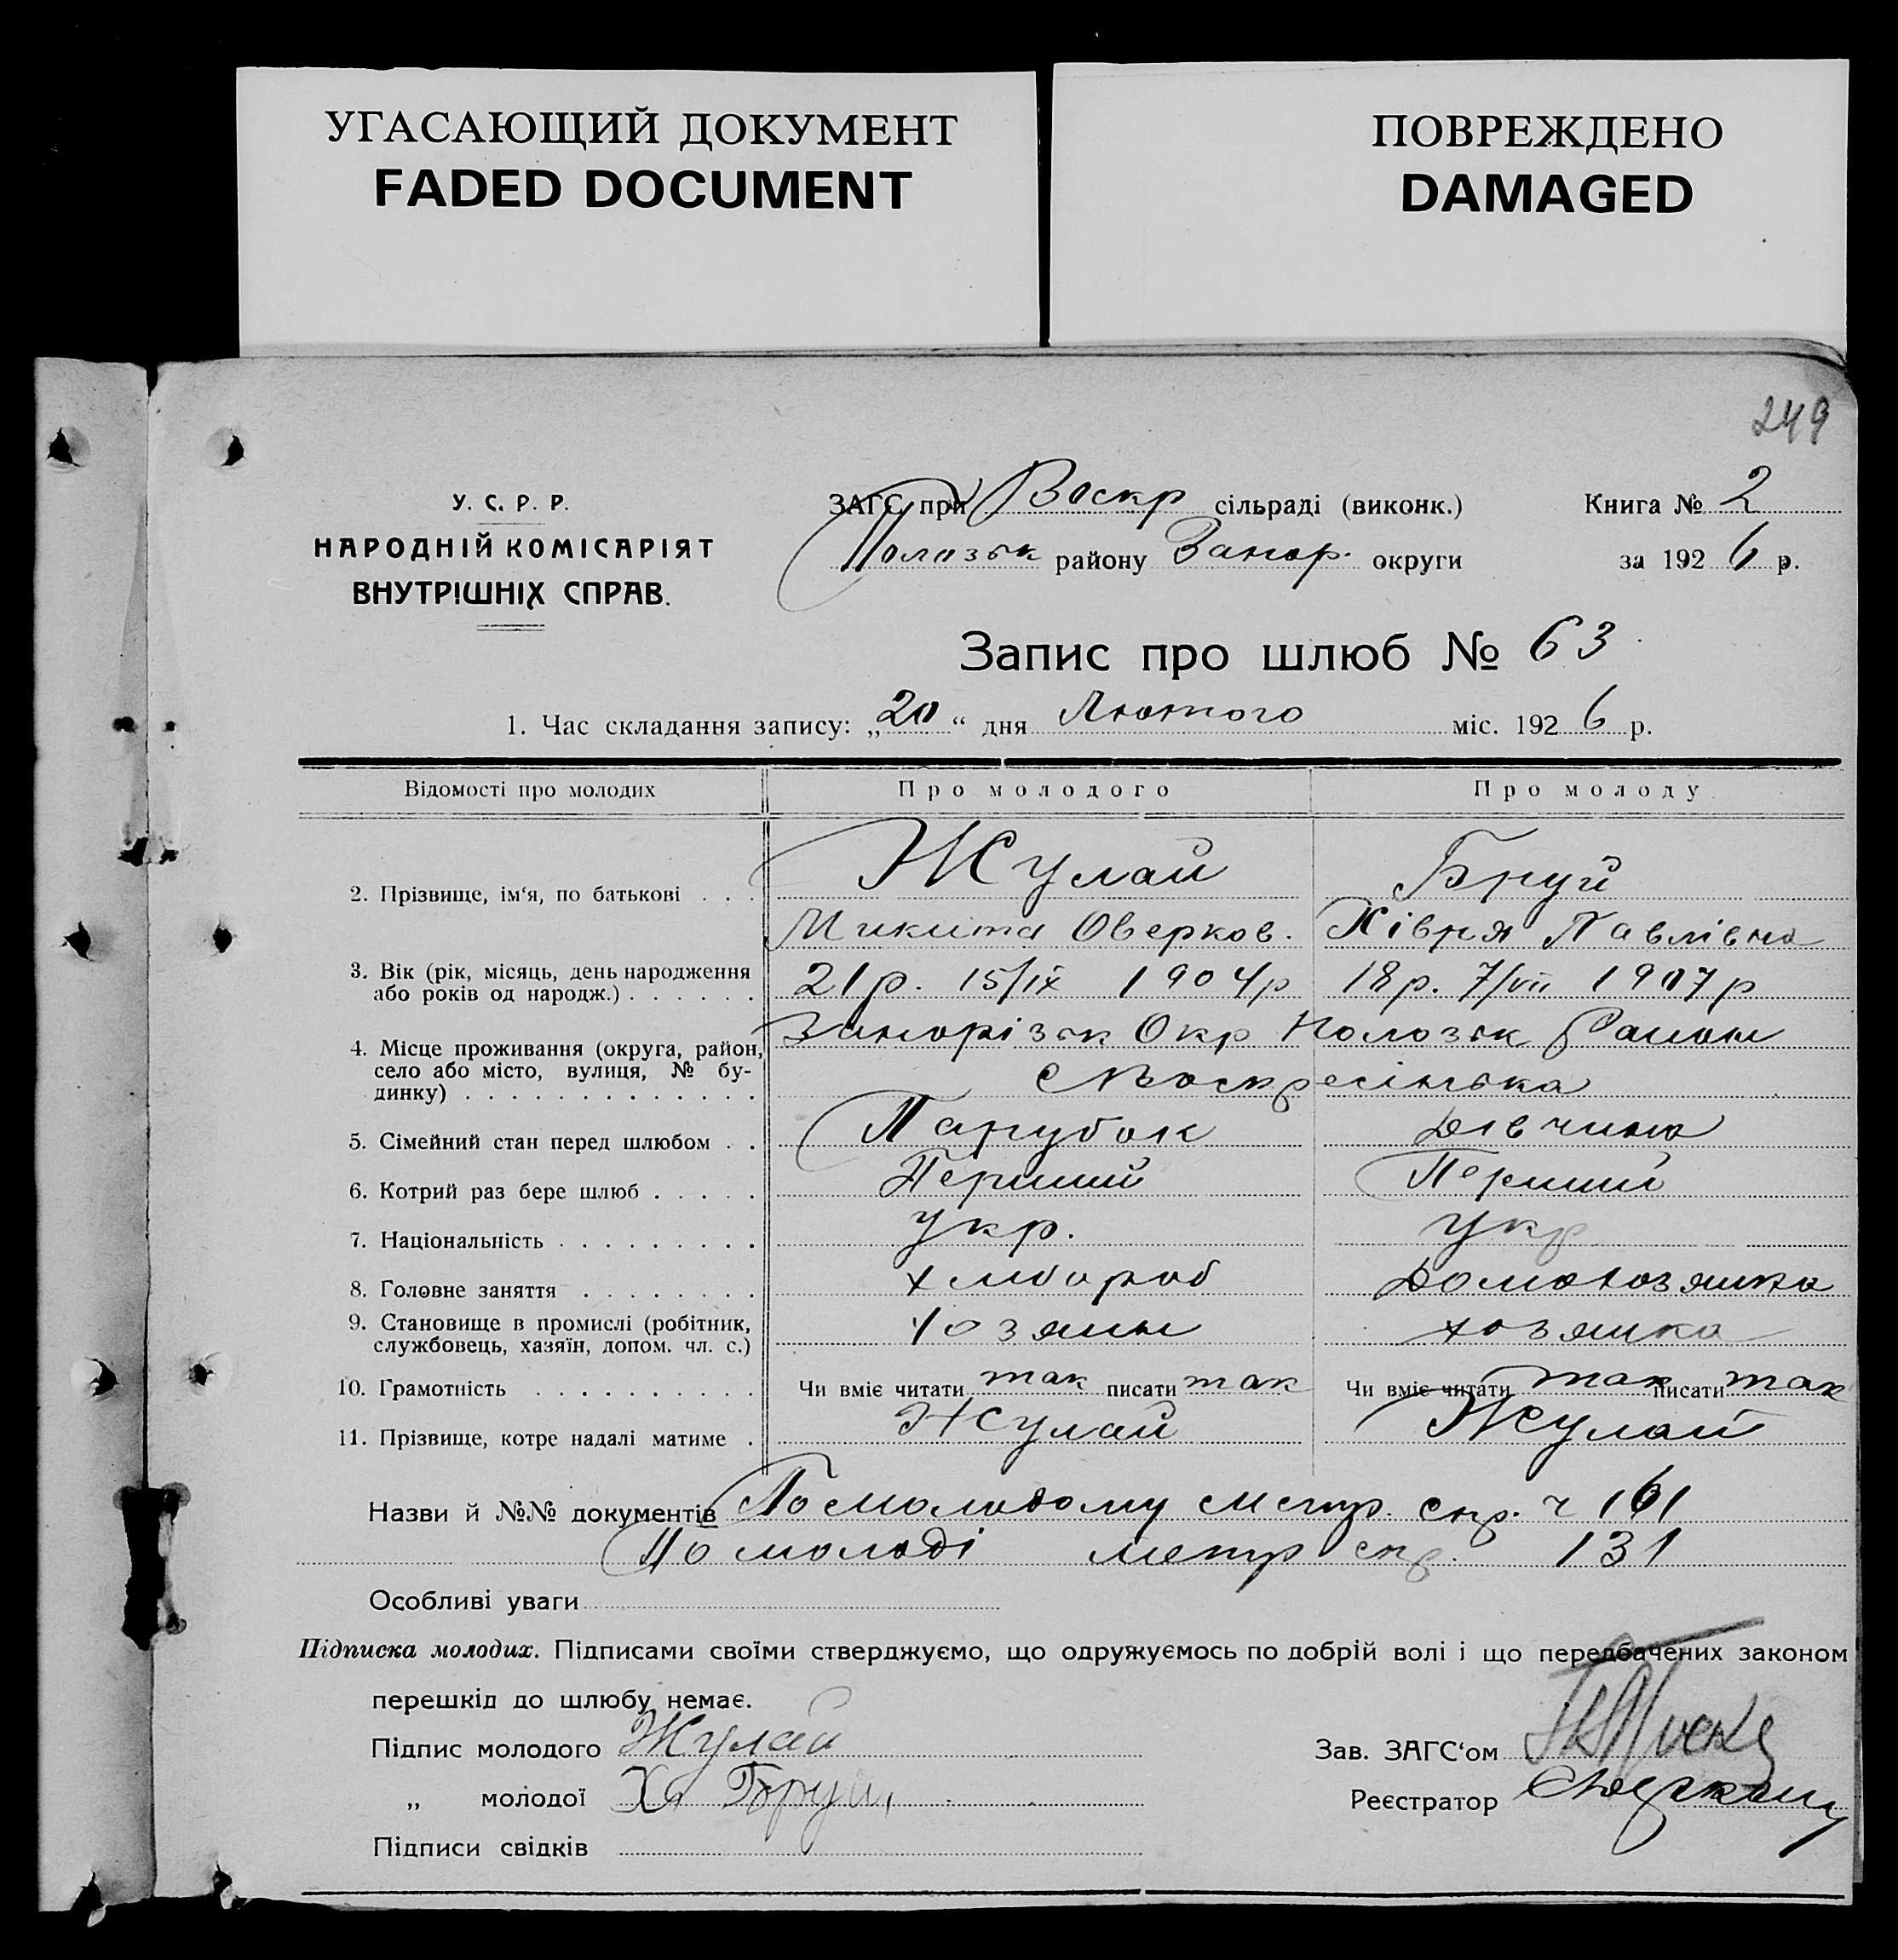 УГАСАЮЩИЙ ДОКУМЕНТ
FADED DOCUMENT
ПОВРЕЖДЕНО
DAMAGED
249
У. С. Р. Р.
НАРОДНІЙ КОМІСАРІЯТ
ВНУТРІШНІХ СПРАВ.
ЗАГС при Воскр сільраді (виконк.)
Полозьк району Запор. округи
Книга № 2
за 1926 р.
Запис про шлюб № 63
1. Час складання запису: „20“ дня Лютого міс. 1926 р.
Відомості про молодих Про молодого Про молоду
2. Прізвище, ім‘я, по батькові . . . Жулай Бруй
Микита Оверков. Хівря Павлівна
3. Вік (рік, місяць, день народження
або років од народж.) . . . . . . 21р. 15/IX 1904р 18р. 7/VII 1907р
4. Місце проживання (округа, район, Запорізьк Окр Полозьк Район
село або місто, вулиця, № бу-
динку) . . . . . . . . . . . . . с Воскресінська
5. Сімейний стан перед шлюбом . . Парубок Дівчина
6. Котрий раз бере шлюб . . . . . Перший Перший
7. Національність . . . . . . . . . укр. укр
8. Головне заняття . . . . . . . . хлібороб Домохозяйка
9. Становище в промислі (робітник,
службовець, хазяїн, допом. чл. с.) хозяин хозяйка
10. Грамотність . . . . . . . . . . Чи вміє читати так писати так Чи вміє читати так писати так
11. Прізвище, котре надалі матиме . Жулай Жулай
Назви й №№ документів По молодому метр. спр. ч 161
По молоді метр спр. 131
Особливі уваги
Підписка молодих. Підписами своїми стверджуємо, що одружуємось по добрій волі і що передбачених законом
перешкід до шлюбу немає.
Підпис молодого Жулай
„ молодої Х Бруй,
Підписи свідків
Зав. ЗАГС‘ом
Реєстратор